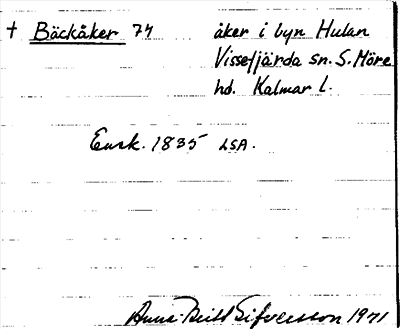 † Bäckåker 74 åker i byn Hulan
Vissefjärda sn. S. Möre
hd. Kalmar l.
Ensk. 1835 LSA.
Anna-Britt Sifversson 1971